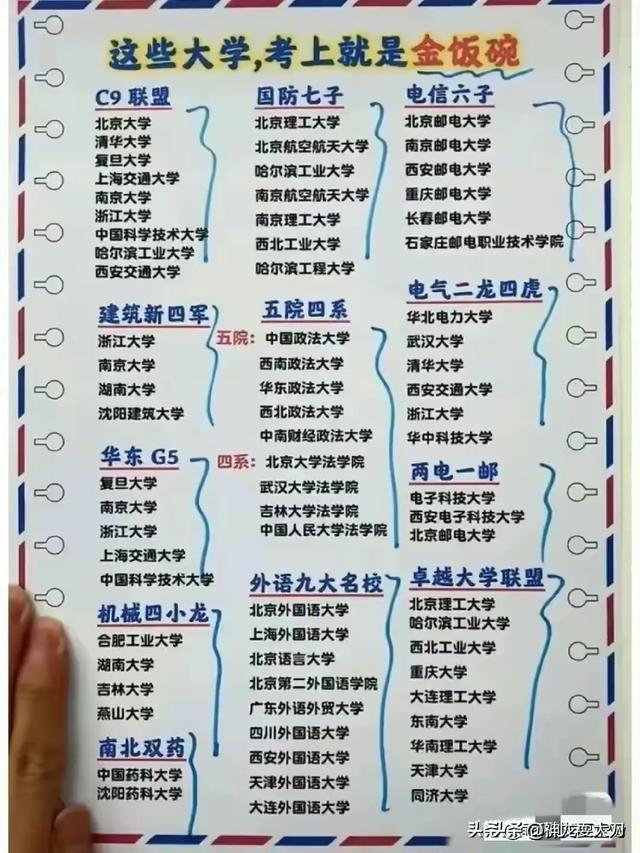 这些大学,考上就是金饭碗
C9 联盟
北京大学
清华大学
复旦大学
上海交通大学
南京大学
浙江大学
中国科学技术大学
哈尔滨工业大学
西安交通大学
国防七子
北京理工大学
北京航空航天大学
哈尔滨工业大学
南京航空航天大学
南京理工大学
西北工业大学
哈尔滨工程大学
电信六子
北京邮电大学
南京邮电大学
西安邮电大学
重庆邮电大学
长春邮电大学
石家庄邮电职业技术学院
建筑新四军
浙江大学
南京大学
湖南大学
沈阳建筑大学
五院四系
五院: 中国政法大学
西南政法大学
华东政法大学
西北政法大学
中南财经政法大学
四系: 北京大学法学院
武汉大学法学院
吉林大学法学院
中国人民大学法学院
电气二龙四虎
华北电力大学
武汉大学
清华大学
西安交通大学
浙江大学
华中科技大学
华东 G5
复旦大学
南京大学
浙江大学
上海交通大学
中国科学技术大学
两电一邮
电子科技大学
西安电子科技大学
北京邮电大学
机械四小龙
合肥工业大学
湖南大学
吉林大学
燕山大学
外语九大名校
北京外国语大学
上海外国语大学
北京语言大学
北京第二外国语学院
广东外语外贸大学
四川外国语大学
西安外国语大学
天津外国语大学
大连外国语大学
卓越大学联盟
北京理工大学
哈尔滨工业大学
西北工业大学
重庆大学
大连理工大学
东南大学
华南理工大学
天津大学
同济大学
南北双药
中国药科大学
沈阳药科大学
头条 @神龙耍大刀